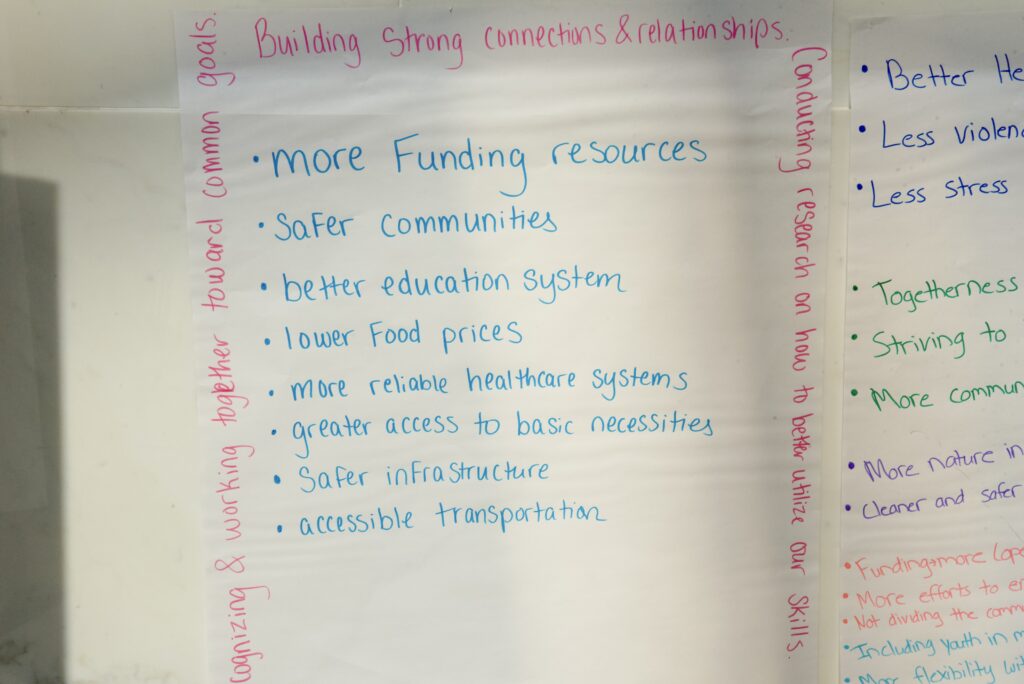 Building Strong connections & relationships.
• more Funding resources
• Safer communities
• better education system
• lower Food prices
• more reliable healthcare systems
• greater access to basic necessities
• Safer infrastructure
• accessible transportation
cognizing & working together toward common goals.
Conducting research on how to better utilize our Skills.
• Better He
• Less violenc
• Less stress
• Togetherness
• Striving to
• More commun
• More nature in
• Cleaner and safer
• Funding + more
• More efforts to
• Not dividing the comm
• Including youth in m
• More flexibility wit